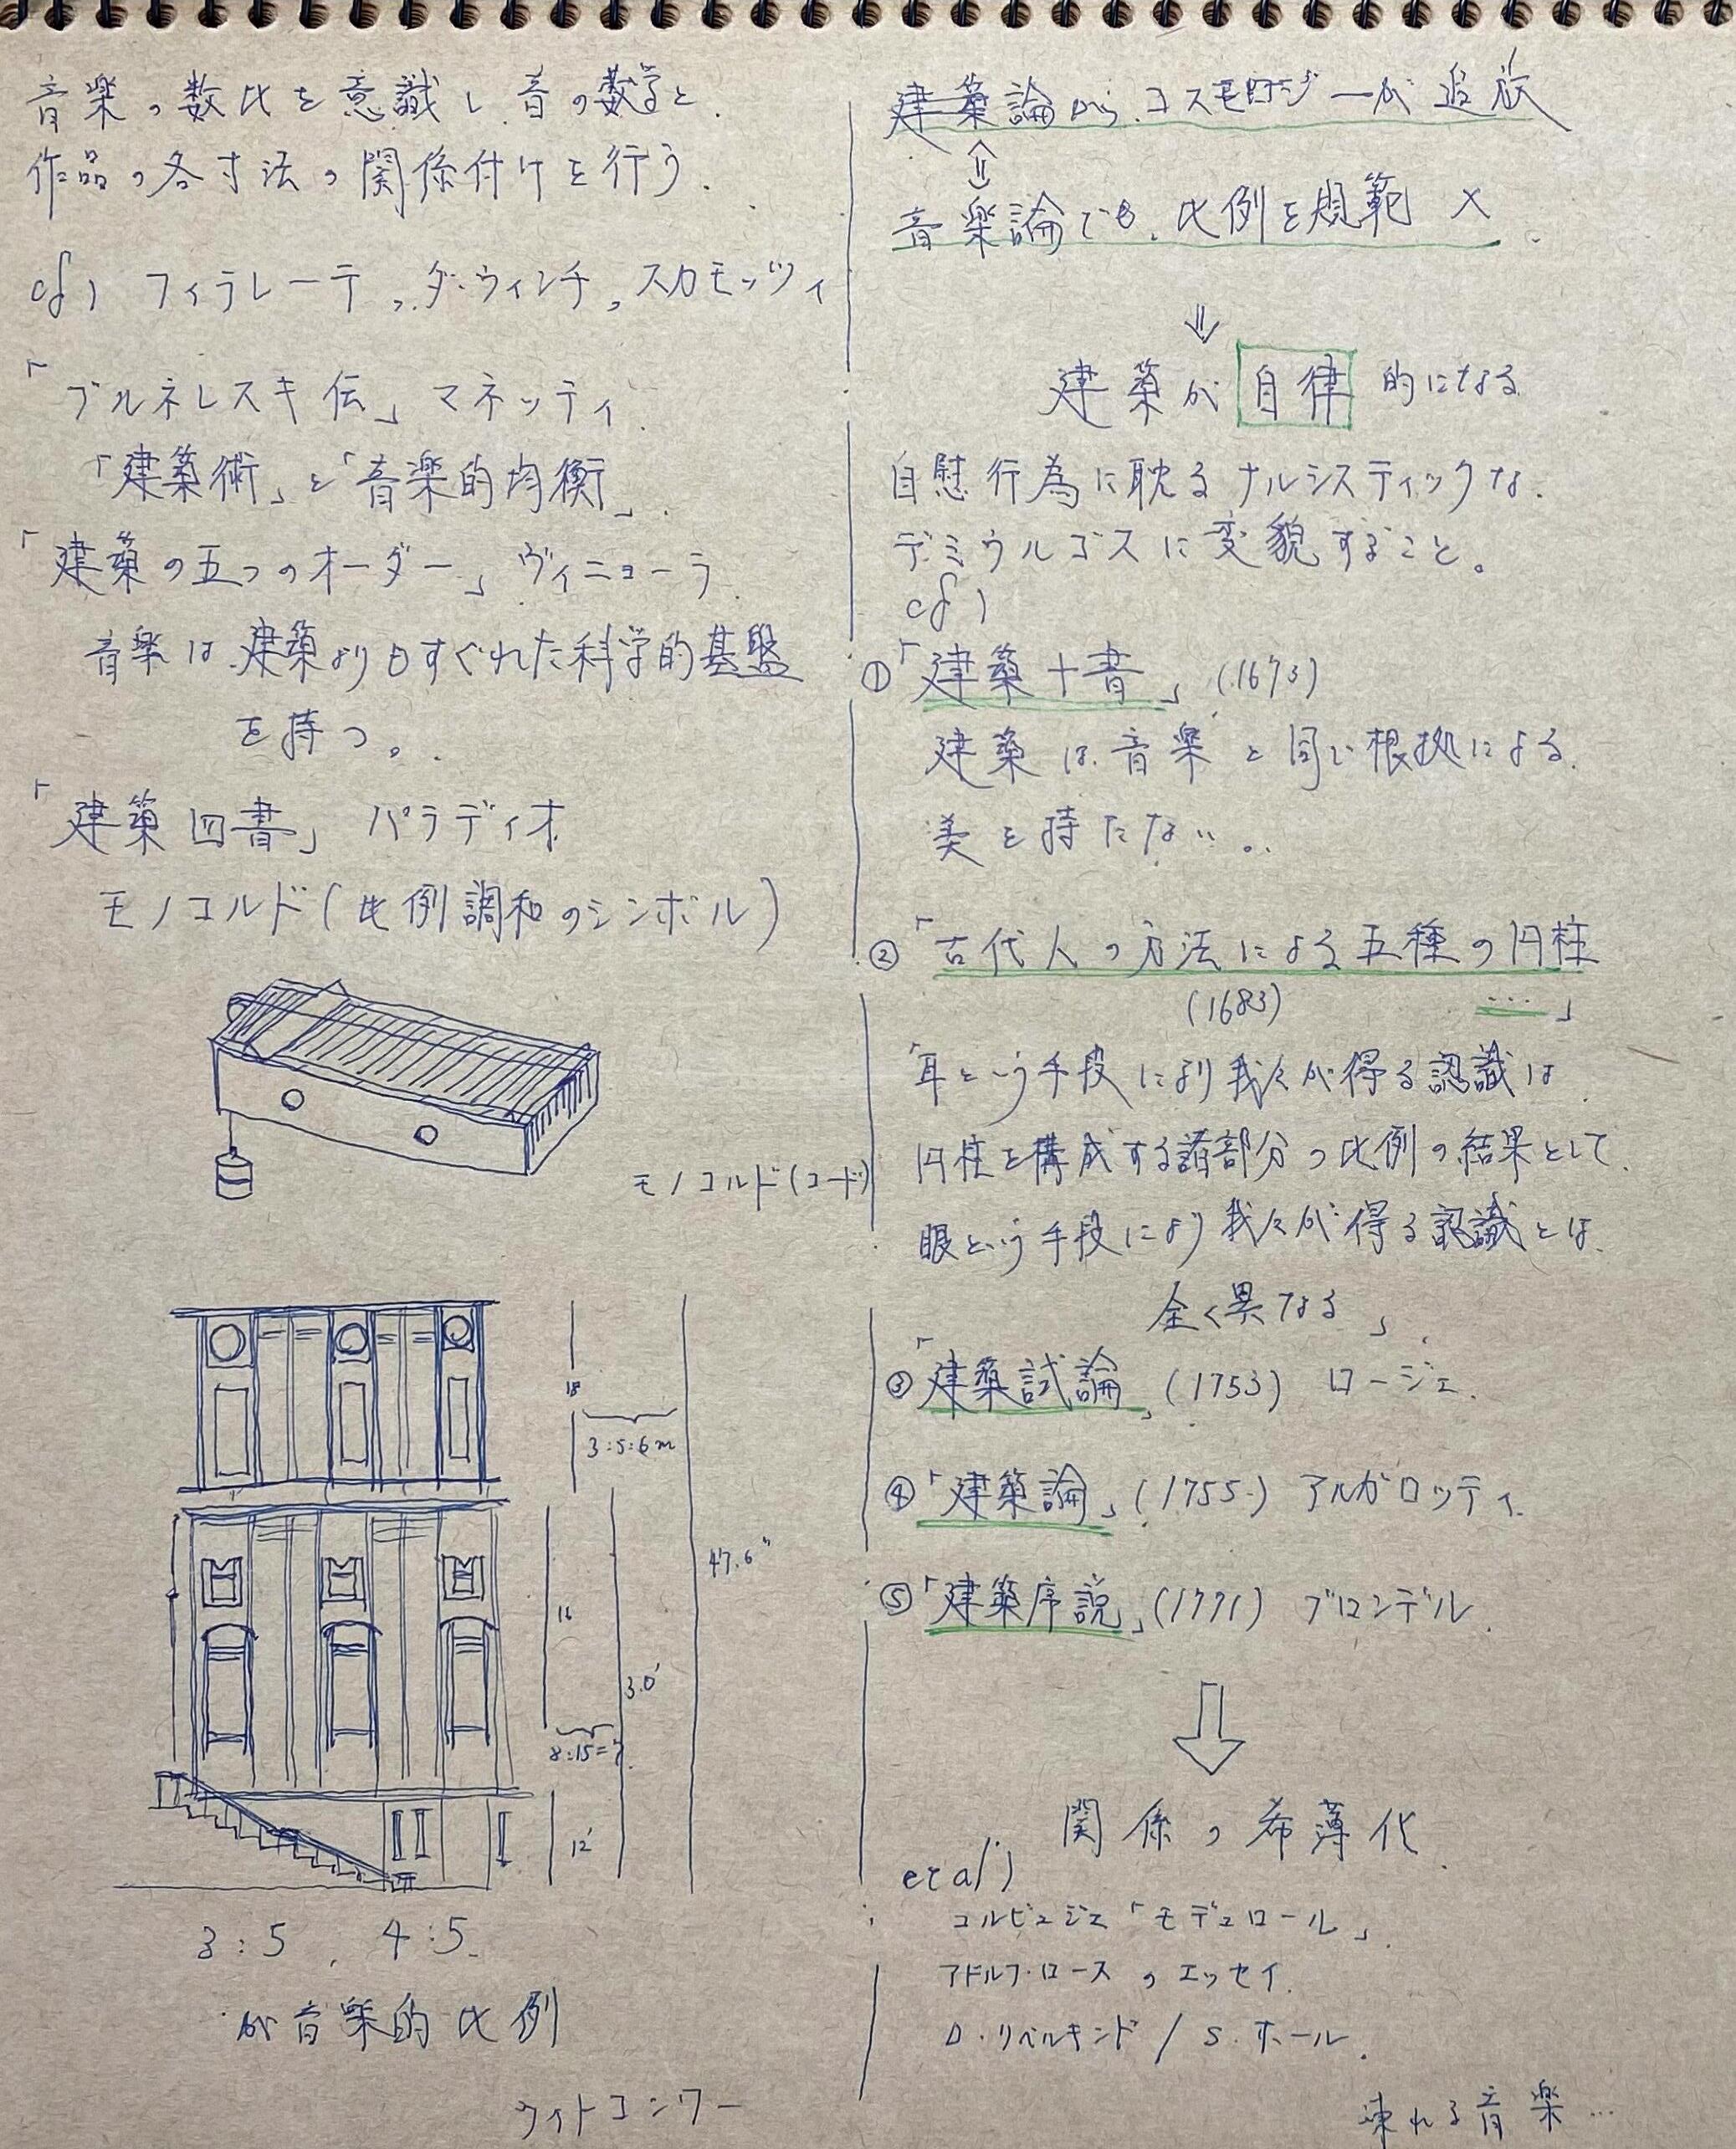 音楽の数比を意識し、音の数学と
作品の各寸法の関係付けを行う.
cf) フィラレーテ, ダ・ウィンチ, スカモッツィ
「ブルネレスキ伝」マネッティ
「建築術」と「音楽的均衡」.
「建築の五つのオーダー」ヴィニョーラ
音楽は建築よりもすぐれた科学的基盤
を持つ。
「建築四書」パラディオ
モノコルド(比例調和のシンボル)
モノコルド(コード)
18
3:5:6m
47.6"
16
3.0'
8:15=7
12'
3:5, 4:5
が音楽的比例
ウイトコンワー
建築論から、コスモロジーが追放
音楽論でも、比例を規範 ×
建築が自律的になる
自慰行為に耽るナルシスティックな
デミウルゴスに変貌すること。
cf)
①「建築十書」(1673)
建築は音楽と同じ根拠による
美を持たない。
②「古代人の方法による五種の円柱
(1683) …」
「耳という手段により我々が得る認識は
円柱を構成する諸部分の比例の結果として
眼という手段により我々が得る認識とは
全く異なる」
③「建築試論」(1753) ロージェ
④「建築論」(1755) アルガロッティ
⑤「建築序説」(1771) ブロンデル
関係の希薄化
et al)
コルビュジェ「モデュロール」
アドルフ・ロースのエッセイ
D・リベルキンド / S・ホール
凍れる音楽…